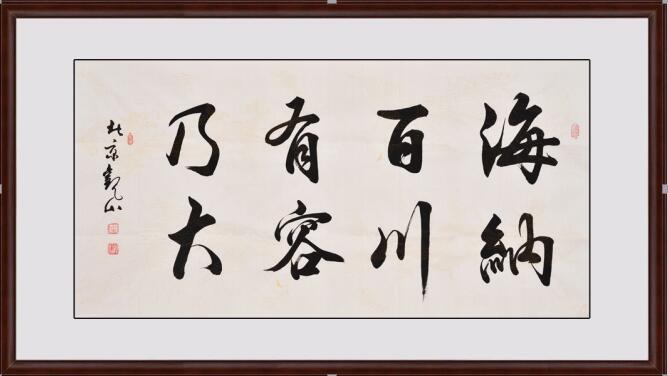 海納
百川
有容
乃大
北京